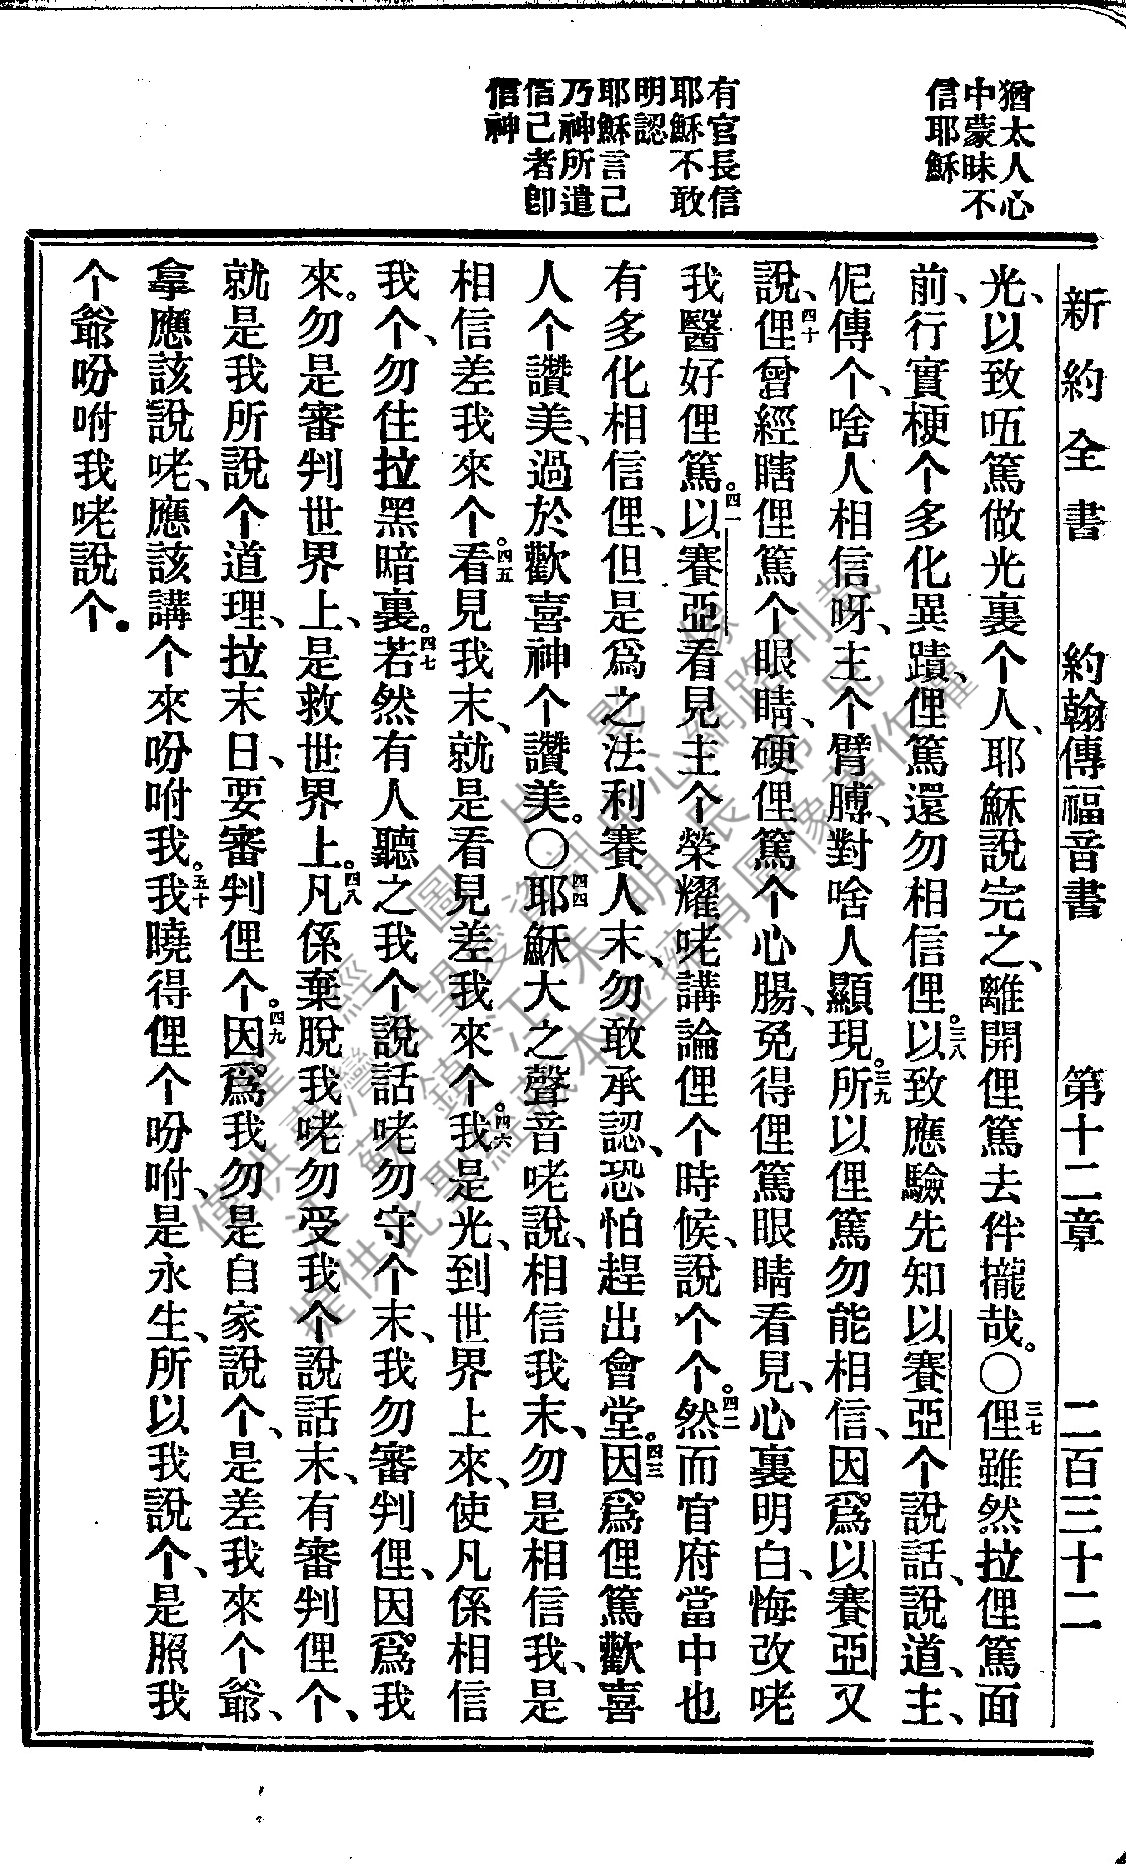 猶太人心
中蒙昧不
信耶穌
有官長信
耶穌不敢
明認
耶穌言己
乃神所遣
信己者卽
信神
新約全書 約翰傳福音書 第十二章 二百三十二
光、以致㕶篤做光裏个人、耶穌說完之、離開俚篤去伴攏哉。〇三七俚雖然拉俚篤面
前、行實梗个多化異蹟、俚篤還勿相信俚。三八以致應驗先知以賽亞个說話、說道、主、
伲傳个、啥人相信呀、主个臂膊、對啥人顯現。三九所以俚篤勿能相信、因爲以賽亞又
說、四十俚曾經瞎俚篤个眼睛、硬俚篤个心腸、免得俚篤眼睛看見、心裏明白、悔改咾
我醫好俚篤。四一以賽亞看見主个榮耀咾講論俚个時候、說个个。四二然而官府當中也
有多化相信俚、但是爲之法利賽人末、勿敢承認、恐怕趕出會堂。四三因爲俚篤歡喜
人个讚美、過於歡喜神个讚美。〇四四耶穌大之聲音咾說、相信我末、勿是相信我、是
相信差我來个。四五看見我末、就是看見差我來个。四六我是光、到世界上來、使凡係相信
我个、勿住拉黑暗裏。四七若然有人聽之我个說話咾勿守个末、我勿審判俚、因爲我
來。勿是審判世界上、是救世界上。四八凡係棄脫我咾勿受我个說話末、有審判俚个、
就是我所說个道理、拉末日、要審判俚个。四九因爲我勿是自家說个、是差我來个爺、
拿應該說咾、應該講个來吩咐我。五十我曉得俚个吩咐、是永生、所以我說个、是照我
个爺吩咐我咾說个。
僅供臺灣信望愛資訊中心網路刊載
江蘇鎮江朱明辰弟兄
提供此聖經或本並擁有圖像著作權